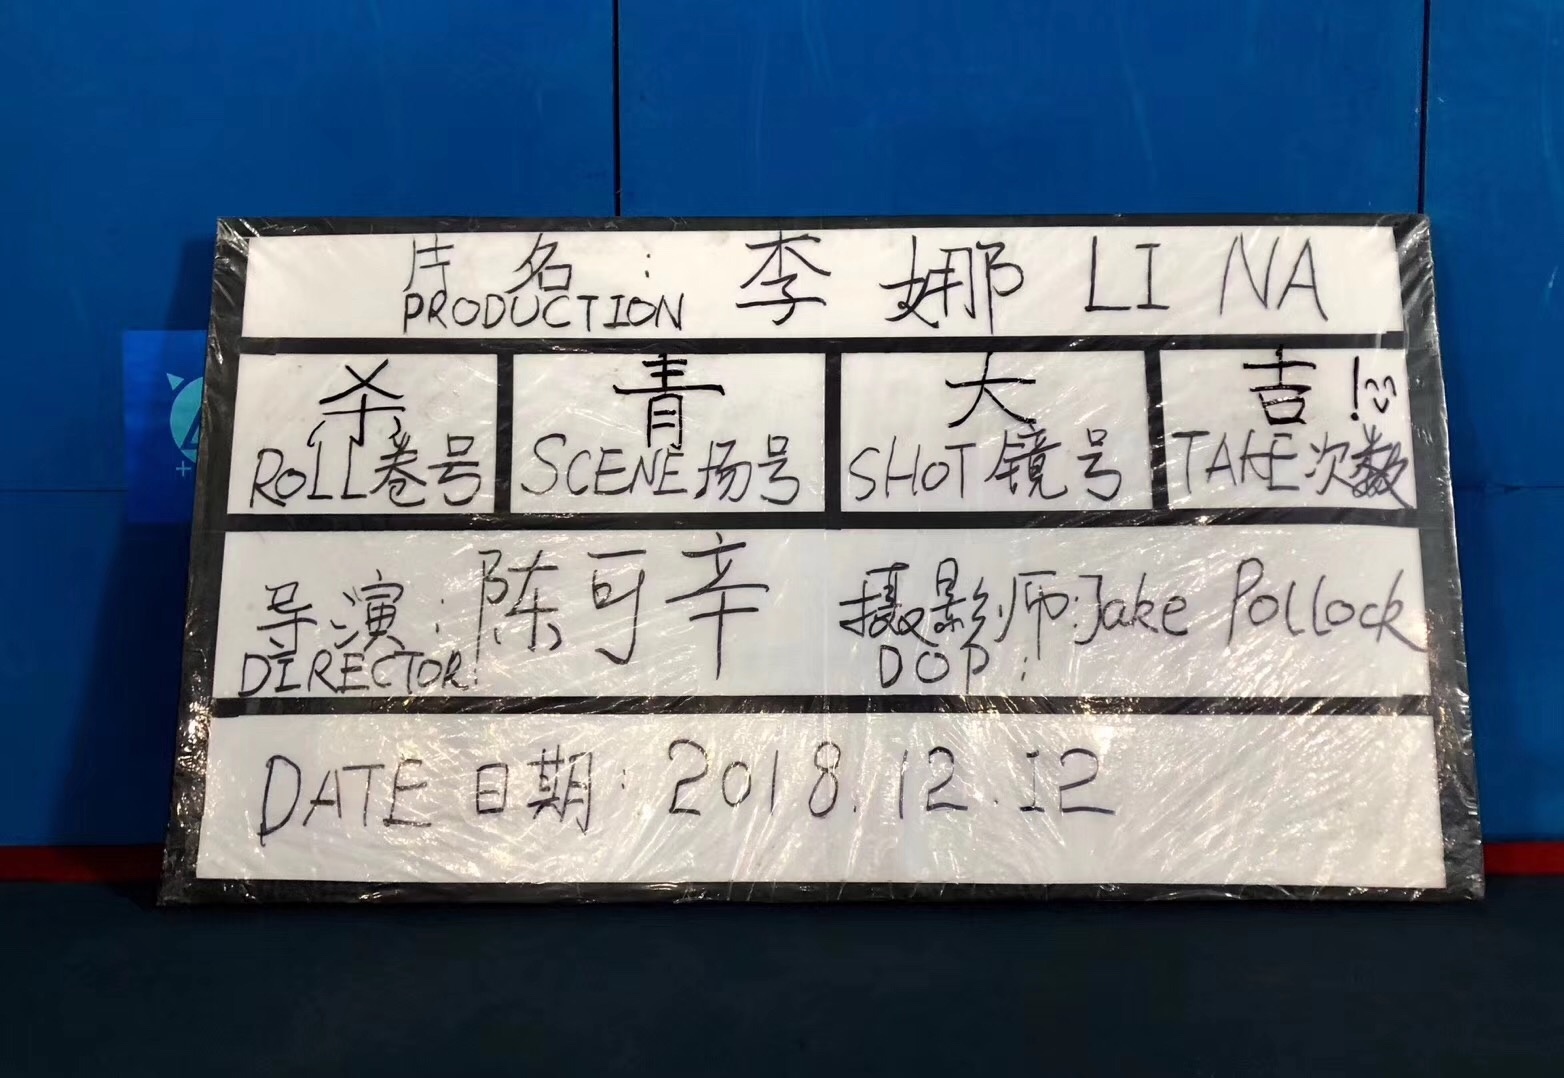 片名: 李娜 LI NA
PRODUCTION
杀 青 大 吉!
ROLL卷号 SCENE场号 SHOT镜号 TAKE次数
导演: 陈可辛 摄影师:Jake Pollock
DIRECTOR DOP:
DATE 日期: 2018.12.12